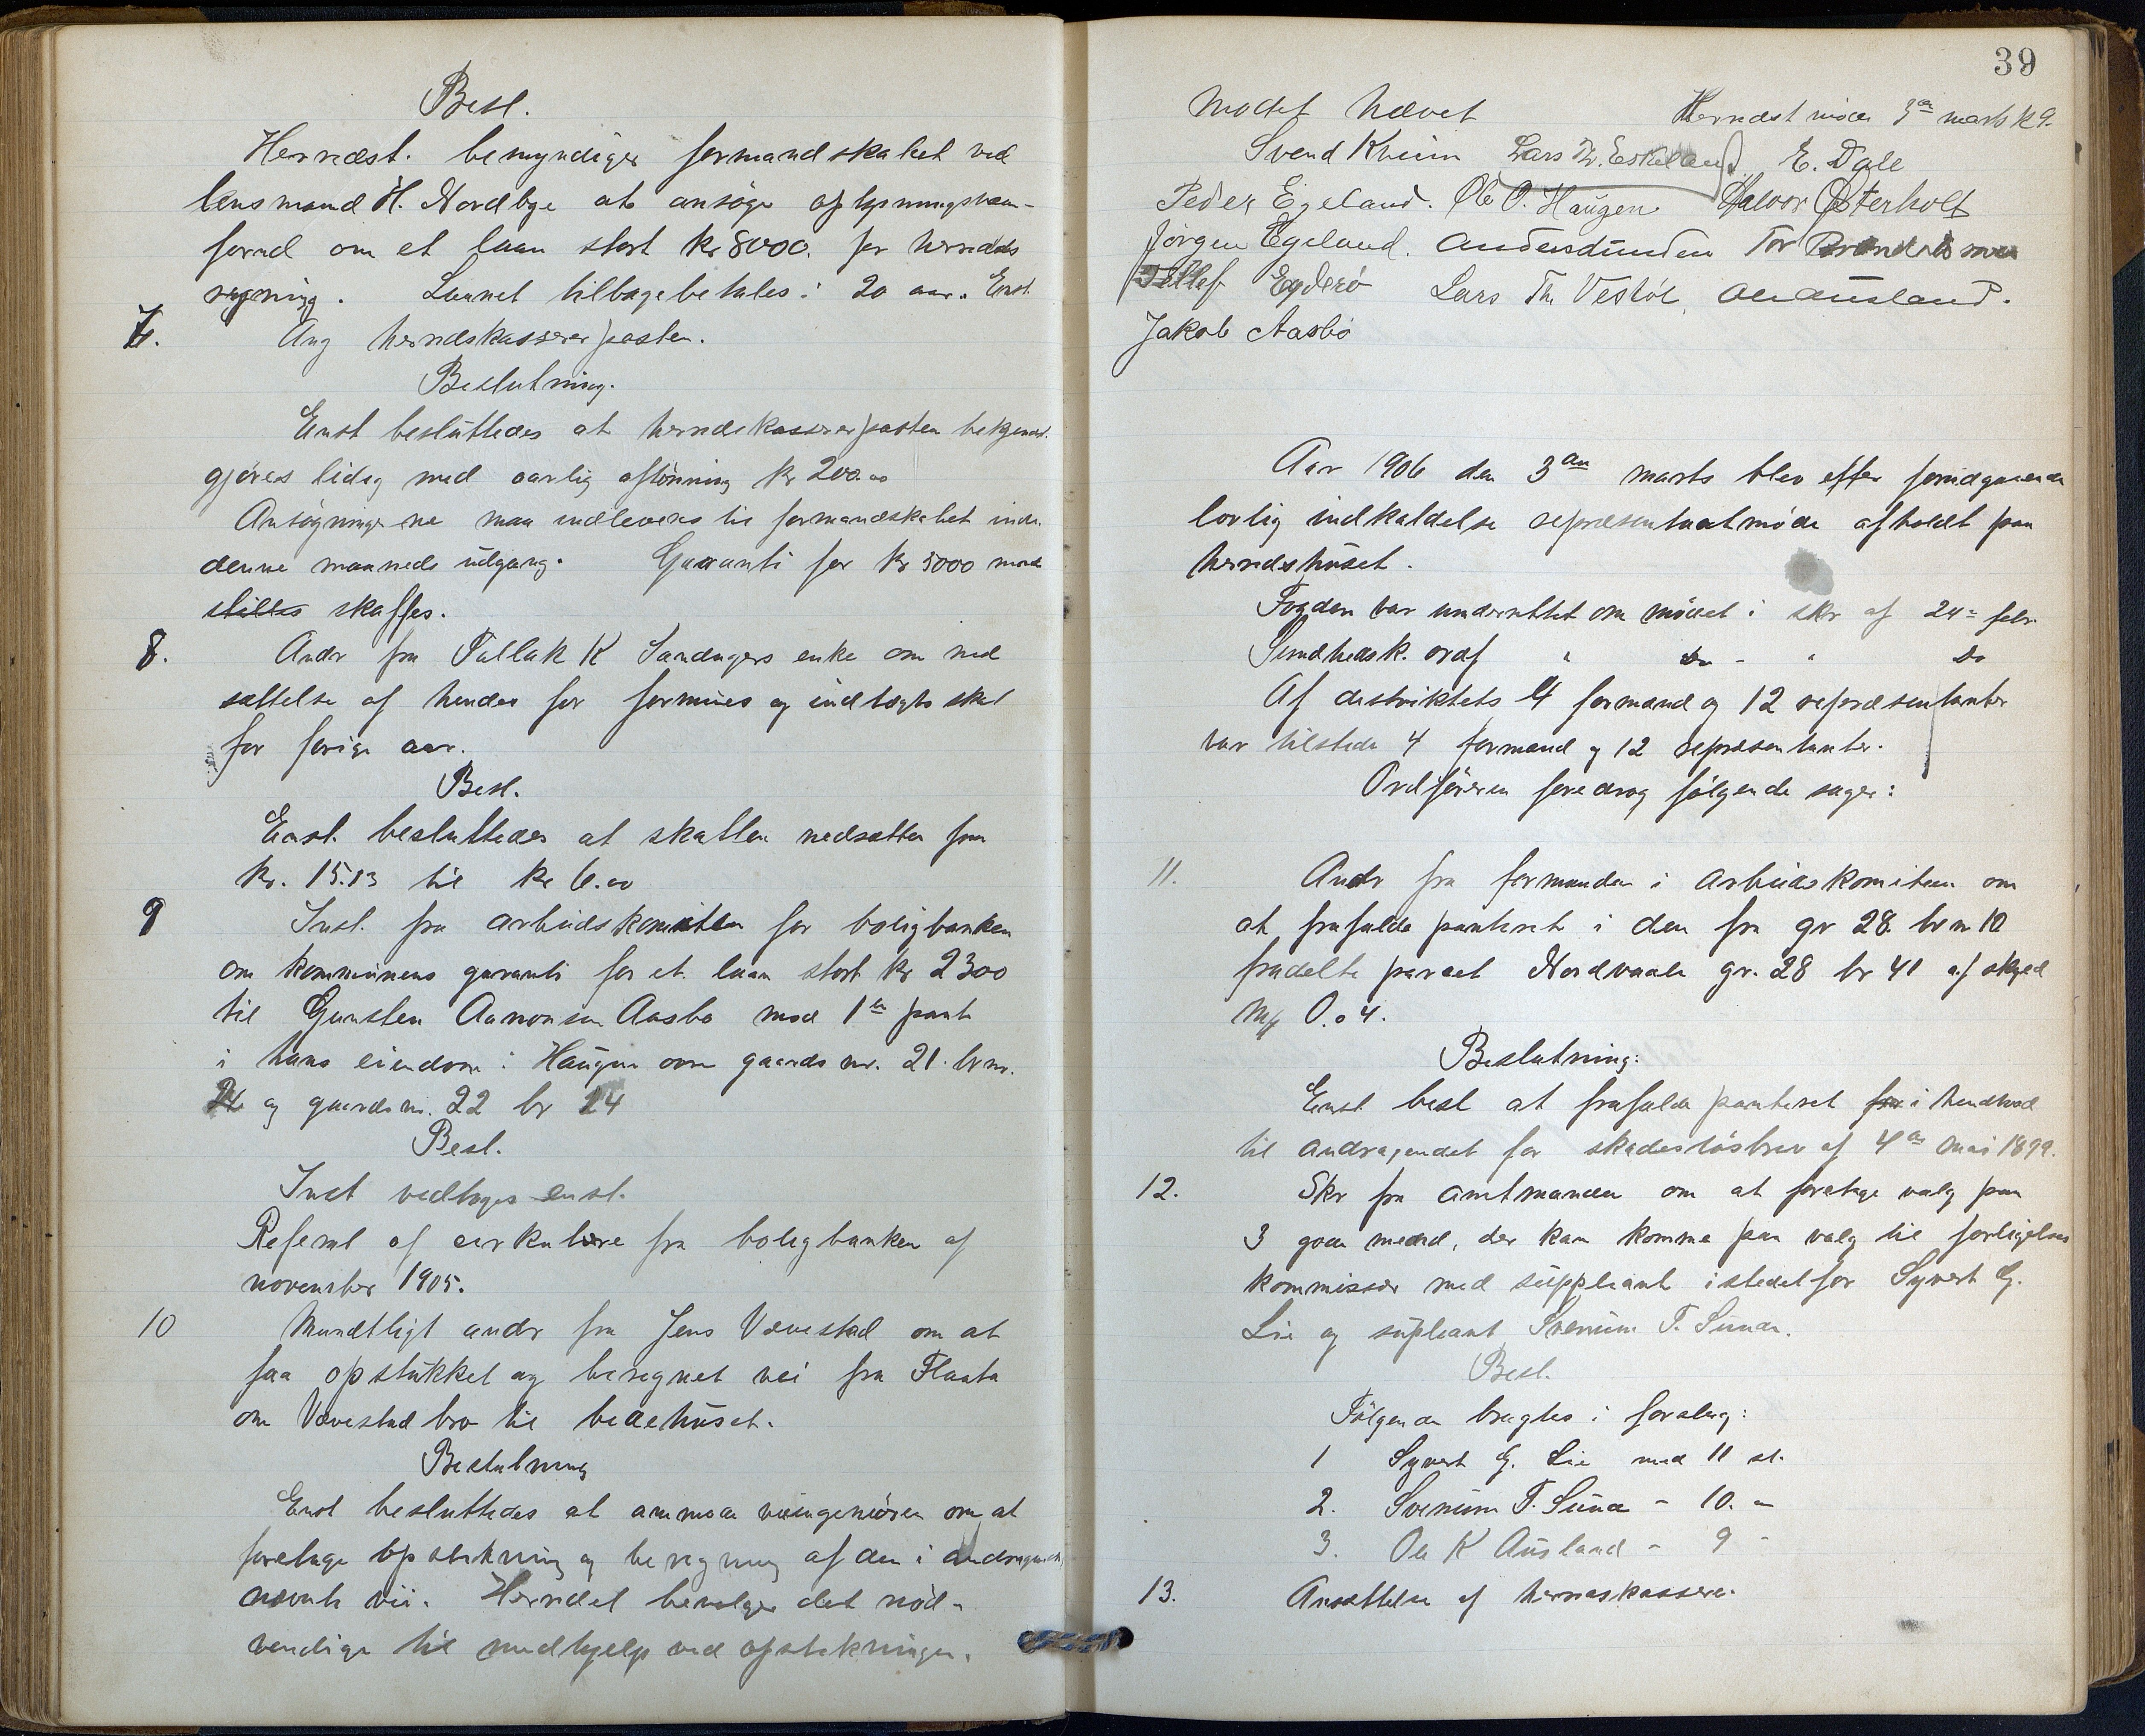 Besl.
Herredst. bemyndiger formandskabet ved
lensmand H. Nordbye at ansøge oplysningsvæn-
fornd om et laan stort kr 8000. for herredets
regning. Laanet tilbagebetales i 20 aar. Enst.
7. Ang herredskassererposten.
Beslutning.
Enst besluttedes at herredskassererposten bekjendt-
gjøres ledig med aarlig aflønning kr 200.00
Ansøgningerne maa indleveres til formandskabet inden
denne maaneds udgang. Garanti for kr 5000 maa
stilles skaffes.
8. Andr fra Tallak K Sandagers enke om ned
sættelse af hendes for formues og indtægts skat
for forige aar.
Besl.
Enst. besluttedes at skatten nedsættes fra
kr. 15.13 til kr 6.00
9 Inst. fra arbeidskomiteen for boligbanken
om kommunens garanti for et laan stort kr 2300
til Gunsten Aanonsen Aasbø mod 1ste pant
i hans eiendom: Haugen øvre gaards nr. 21. br nr.
og gaards nr. 22 br 24
Besl.
Inst vedtages enst.
Referat af cirkulære fra boligbanken af
november 1905.
10 Mundtligt andr fra Jens Vævestad om at
faa opstukket og beregnet vei fra Flaata
om Vævestad bro til bedehuset.
Beslutning
Enst besluttedes at anmode veiingeniøren om at
foretage opstikning og beregning af den i andragendet
nævnte vei. Herredet bevilger det nød-
vendige til medhjelp ved opstikningen.
39
Mødet hævet Herredst møde 3die marts 1
Svend Kheim Lars Th. Eskeland E. Dale
Peder Egeland. Ole O. Haugen Halvor Østerholt
Jørgen Egeland. Anders Lunden Tor
Tellef Egderø Lars Th. Vestøl, Ole Ausland.
Jakob Aasbø
Aar 1906 den 3die marts blev efter foregaaende
lovlig indkaldelse repræsentantmøde afholdt paa
herredshuset.
Fogden var underrettet om mødet i skr af 24de febr.
Sundhedsk. ordf " Do - " Do
Af distriktets 4 formænd og 12 repræsentanter
var tilstede 4 formænd og 12 repræsentanter.
Ordføreren foredrog følgende sager:
11. Andr fra formanden i arbeidskomiteen om
at frafalde panteret i den fra gr 28 br nr 10
fradelte parcel Nordvaale gr. 28 br 41 af skyld
Mk 0.04.
Beslutning:
Enst besl at frafalde panteret for i henhold
til andragendet for skadesløsbrev af 4de mai 1899.
12. Skr fra amtmanden om at foretage valg paa
3 gode mænd, der kan komme paa valg til forligelses
kommissær med suppleant istedetfor Syvert G.
Lie og supleant Svenum T. Sunde.
Besl.
Følgende bragtes i forslag:
1 Syvert G. Lie med 11 st.
2. Svenum T. Sunde - 10. -
3. Ole K Ausland - 9 -
13. Ansættelse af herredskasserer.